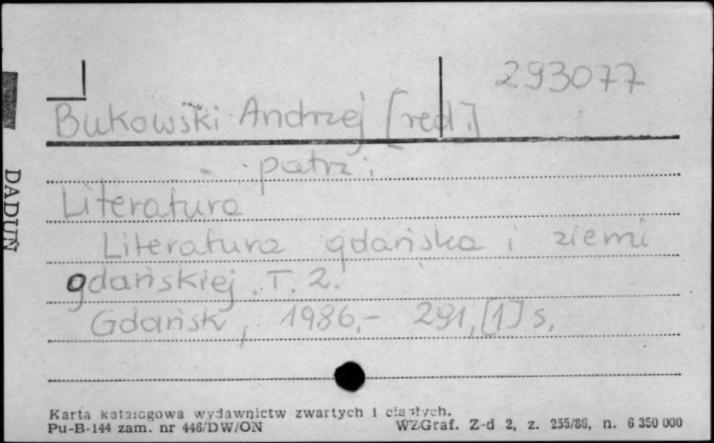 293077
Bukowski Andrzej [red.]
patrz:
Literatura
Literatura gdańska i ziemi
gdańskiej. T. 2.
Gdańsk, 1986.- 291,[1] s.
DADUŃ
Karta katalogowa wydawnictw zwartych i ciągłych.
Pu-B-144 zam. nr 446/DW/ON WZGraf. Z-d 2, z. 255/86, n. 6 350 000